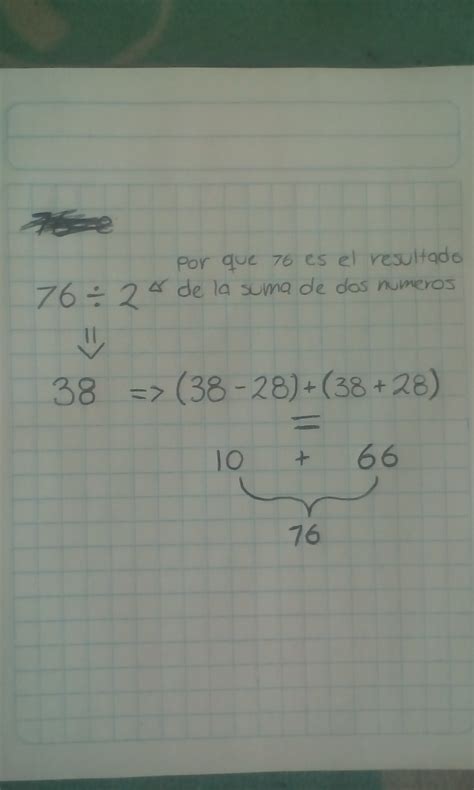 por que 76 es el resultado
76 ÷ 2 de la suma de dos numeros
38 => (38 - 28) + (38 + 28)
=
10 + 66
76